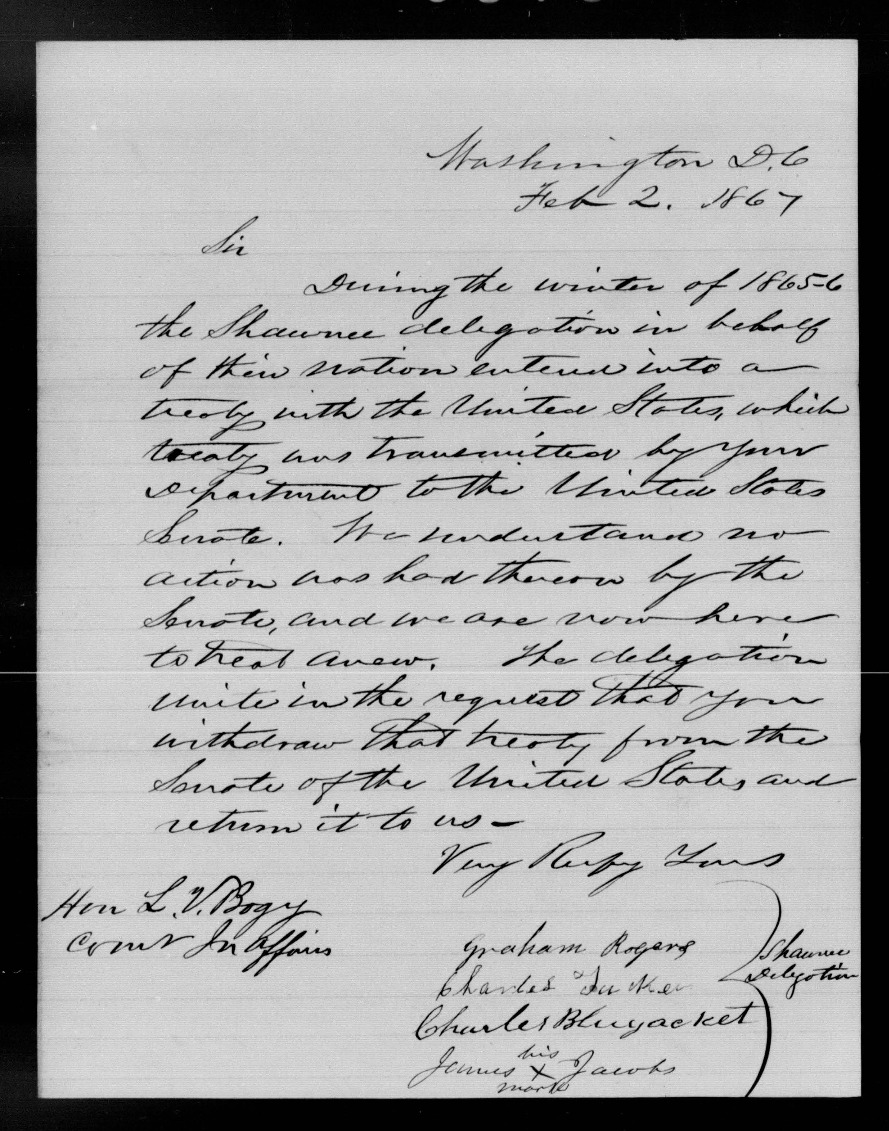 Washington D.C
Feb 2. 1867
Sir
During the winter of 1865-6
the Shawnee delegation in behalf
of their nation entered into a
treaty with the United States, which
treaty was transmitted by your
Department to the United States
Senate. We understand no
action was had thereon by the
Senate, and we are now here
to treat anew. The delegation
unite in the request that you
withdraw that treaty from the
Senate of the United States and
return it to us -
Very Respy Yours
Hon L. V. Bogy
Comr In Affairs
Graham Rogers
Charles Tucker
Charles Bluejacket
James his x mark Jacobs
Shawnee
Delegation